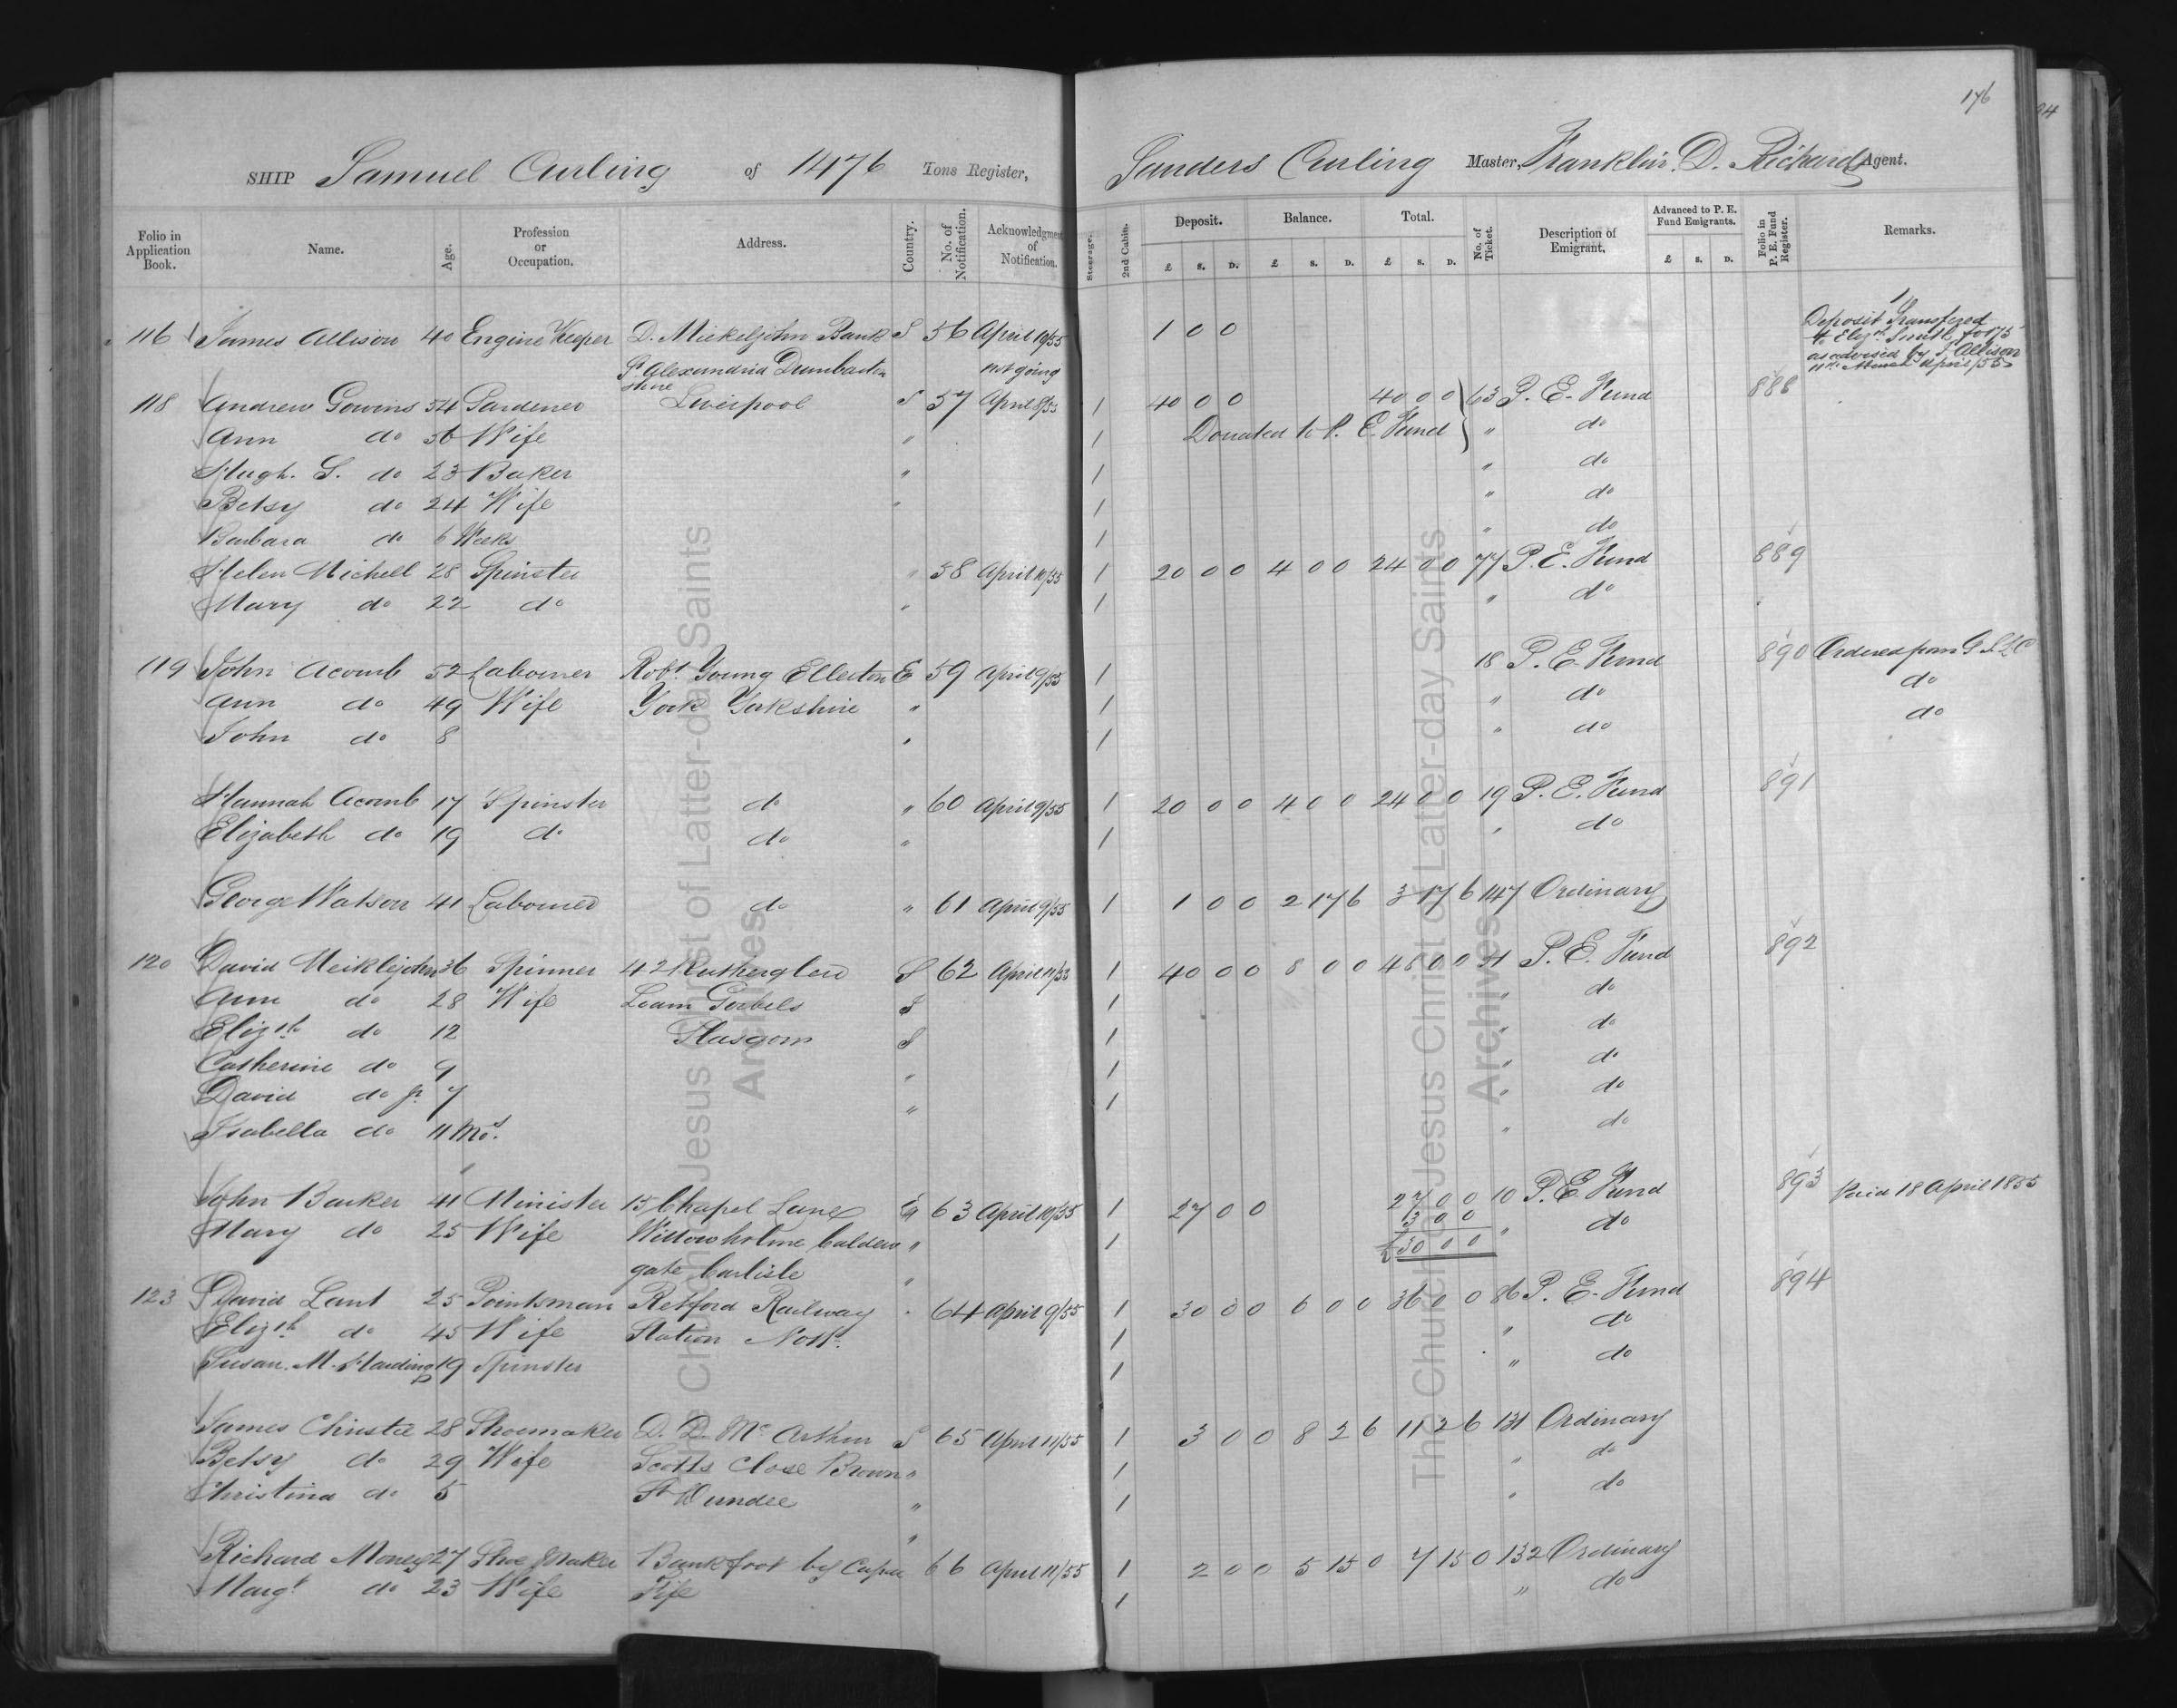 176
SHIP Samuel Curling of 1476 Tons Register, Sanders Curling Master, Franklin. D. Richards Agent.
Folio in Application Book. Name. Age. Profession or Occupation. Address. Country. No. of Notification. Acknowledgment of Notification. Steerage. 2nd Cabin. Deposit. £ S. D. Balance. £ S. D. Total. £ S. D. No. of Ticket. Description of Emigrant. Advanced to P. E. Fund Emigrants. £ S. D. Folio in P. E. Fund Register. Remarks.
116 James Allison 40 Engine Keeper D. Miekeljohn Bank S 56 April 10/55 1 0 0 Deposit Transfered
St Alexandria Dumbarton not going to Elizth Smith fo 175
shire as advised by J. Allison
April/55
118 Andrew Gowins 54 Gardener Liverpool S 57 April 8/55 1 40 0 0 40 0 0 63 P. E. Fund 888
Ann do 56 Wife " 1 Donated to P. E. Fund " do
Hugh. G. do 23 Baker " 1 " do
Betsy do 24 Wife " 1 " do
Barbara do 6 Weeks 1 " do
Helen Michell 28 Spinster " 58 April 10/55 1 20 0 0 4 0 0 24 0 0 77 P. E. Fund 889
Mary do 22 do " 1 " do
119 John Acomb 52 Labourer Robt Young Ellerton E 59 April 9/55 1 18 P. E. Fund 890 Ordered from G. S. L. C
Ann do 49 Wife York Yorkshire " 1 " do do
John do 8 " 1 " do do
Hannah Acomb 17 Spinster do " 60 April 9/55 1 20 0 0 4 0 0 24 0 0 19 P. E. Fund 891
Elizabeth do 19 do do " 1 " do
George Watson 41 Labourer do " 61 April 9/55 1 1 0 0 2 17 6 3 17 6 147 Ordinary
120 David Meiklejohn 36 Spinner 42 Rutherglen S 62 April 11/55 1 40 0 0 8 0 0 48 0 0 71 P. E. Fund 892
Ann do 28 Wife Loam Gorbels S 1 " do
Elizth do 12 Glasgow S 1 " do
Catherine do 9 " 1 " do
David do Jr 7 " 1 " do
Isabella do 11 Mos. " do
John Barker 41 Minister 15 Chapel Lane E 63 April 10/55 1 27 0 0 27 0 0 10 P. E. Fund 893 Paid 18 April 1855
Mary do 25 Wife Willowholme Caldew " 1 3 0 0 " do
gate Carlisle " £30 0 0
123 David Lant 25 Pointsman Retford Railway " 64 April 9/55 1 30 0 0 6 0 0 36 0 0 86 P. E. Fund 894
Elizth do 45 Wife Station Notts. 1 " do
Susan. M. Harding 19 Spinster 1 " do
James Christie 28 Shoemaker D. D. Mc Arthur S 65 April 11/55 1 3 0 0 8 2 6 11 2 6 131 Ordinary
Betsy do 29 Wife Scotts Close Brown " 1 " do
Christina do 5 St Dundee " 1 " do
Richard Money 27 Shoe Maker Bankfoot by Cupar " 66 April 11/55 1 2 0 0 5 15 0 7 15 0 132 Ordinary
Margt do 23 Wife Fife 1 " do
The Church of Jesus Christ of Latter-day Saints
Archives
The Church of Jesus Christ of Latter-day Saints
Archives